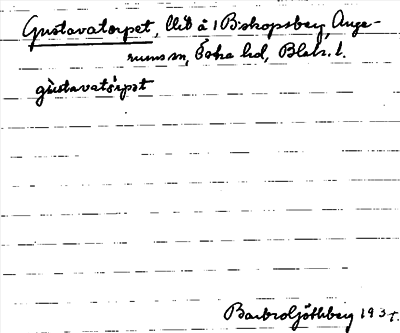 Gustavatorpet, lht å 1 Biskopsberg, Ange-
rums sn, Östra hd, Blek. l.
gùstavatårpət
Barbro Göthberg 193